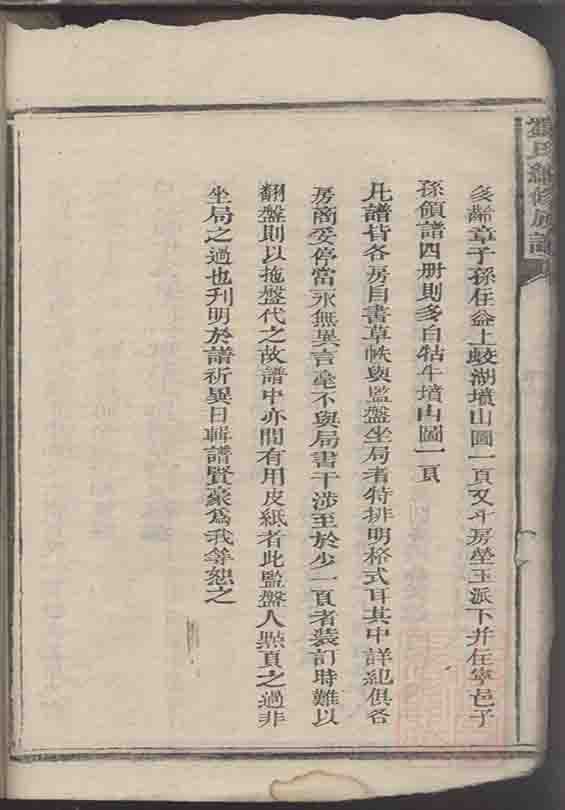 氏續修族譜
多齡章子孫在益上蛟湖墳山圖一頁又斗房瑩玉派下并在寧邑子
孫領譜四册則多白牯牛墳山圖一頁
凡譜皆各房自書草帙與監盤坐局者特排明格式耳其中詳紀俱各
房商妥停當永無異言毫不與局書干涉至於少一頁者裝訂時難以
翻盤則以拖盤代之故譜中亦間有用皮紙者此監盤人㸃頁之過非
坐局之過也刋明於譜祈異日輯譜賢豪爲我等恕之